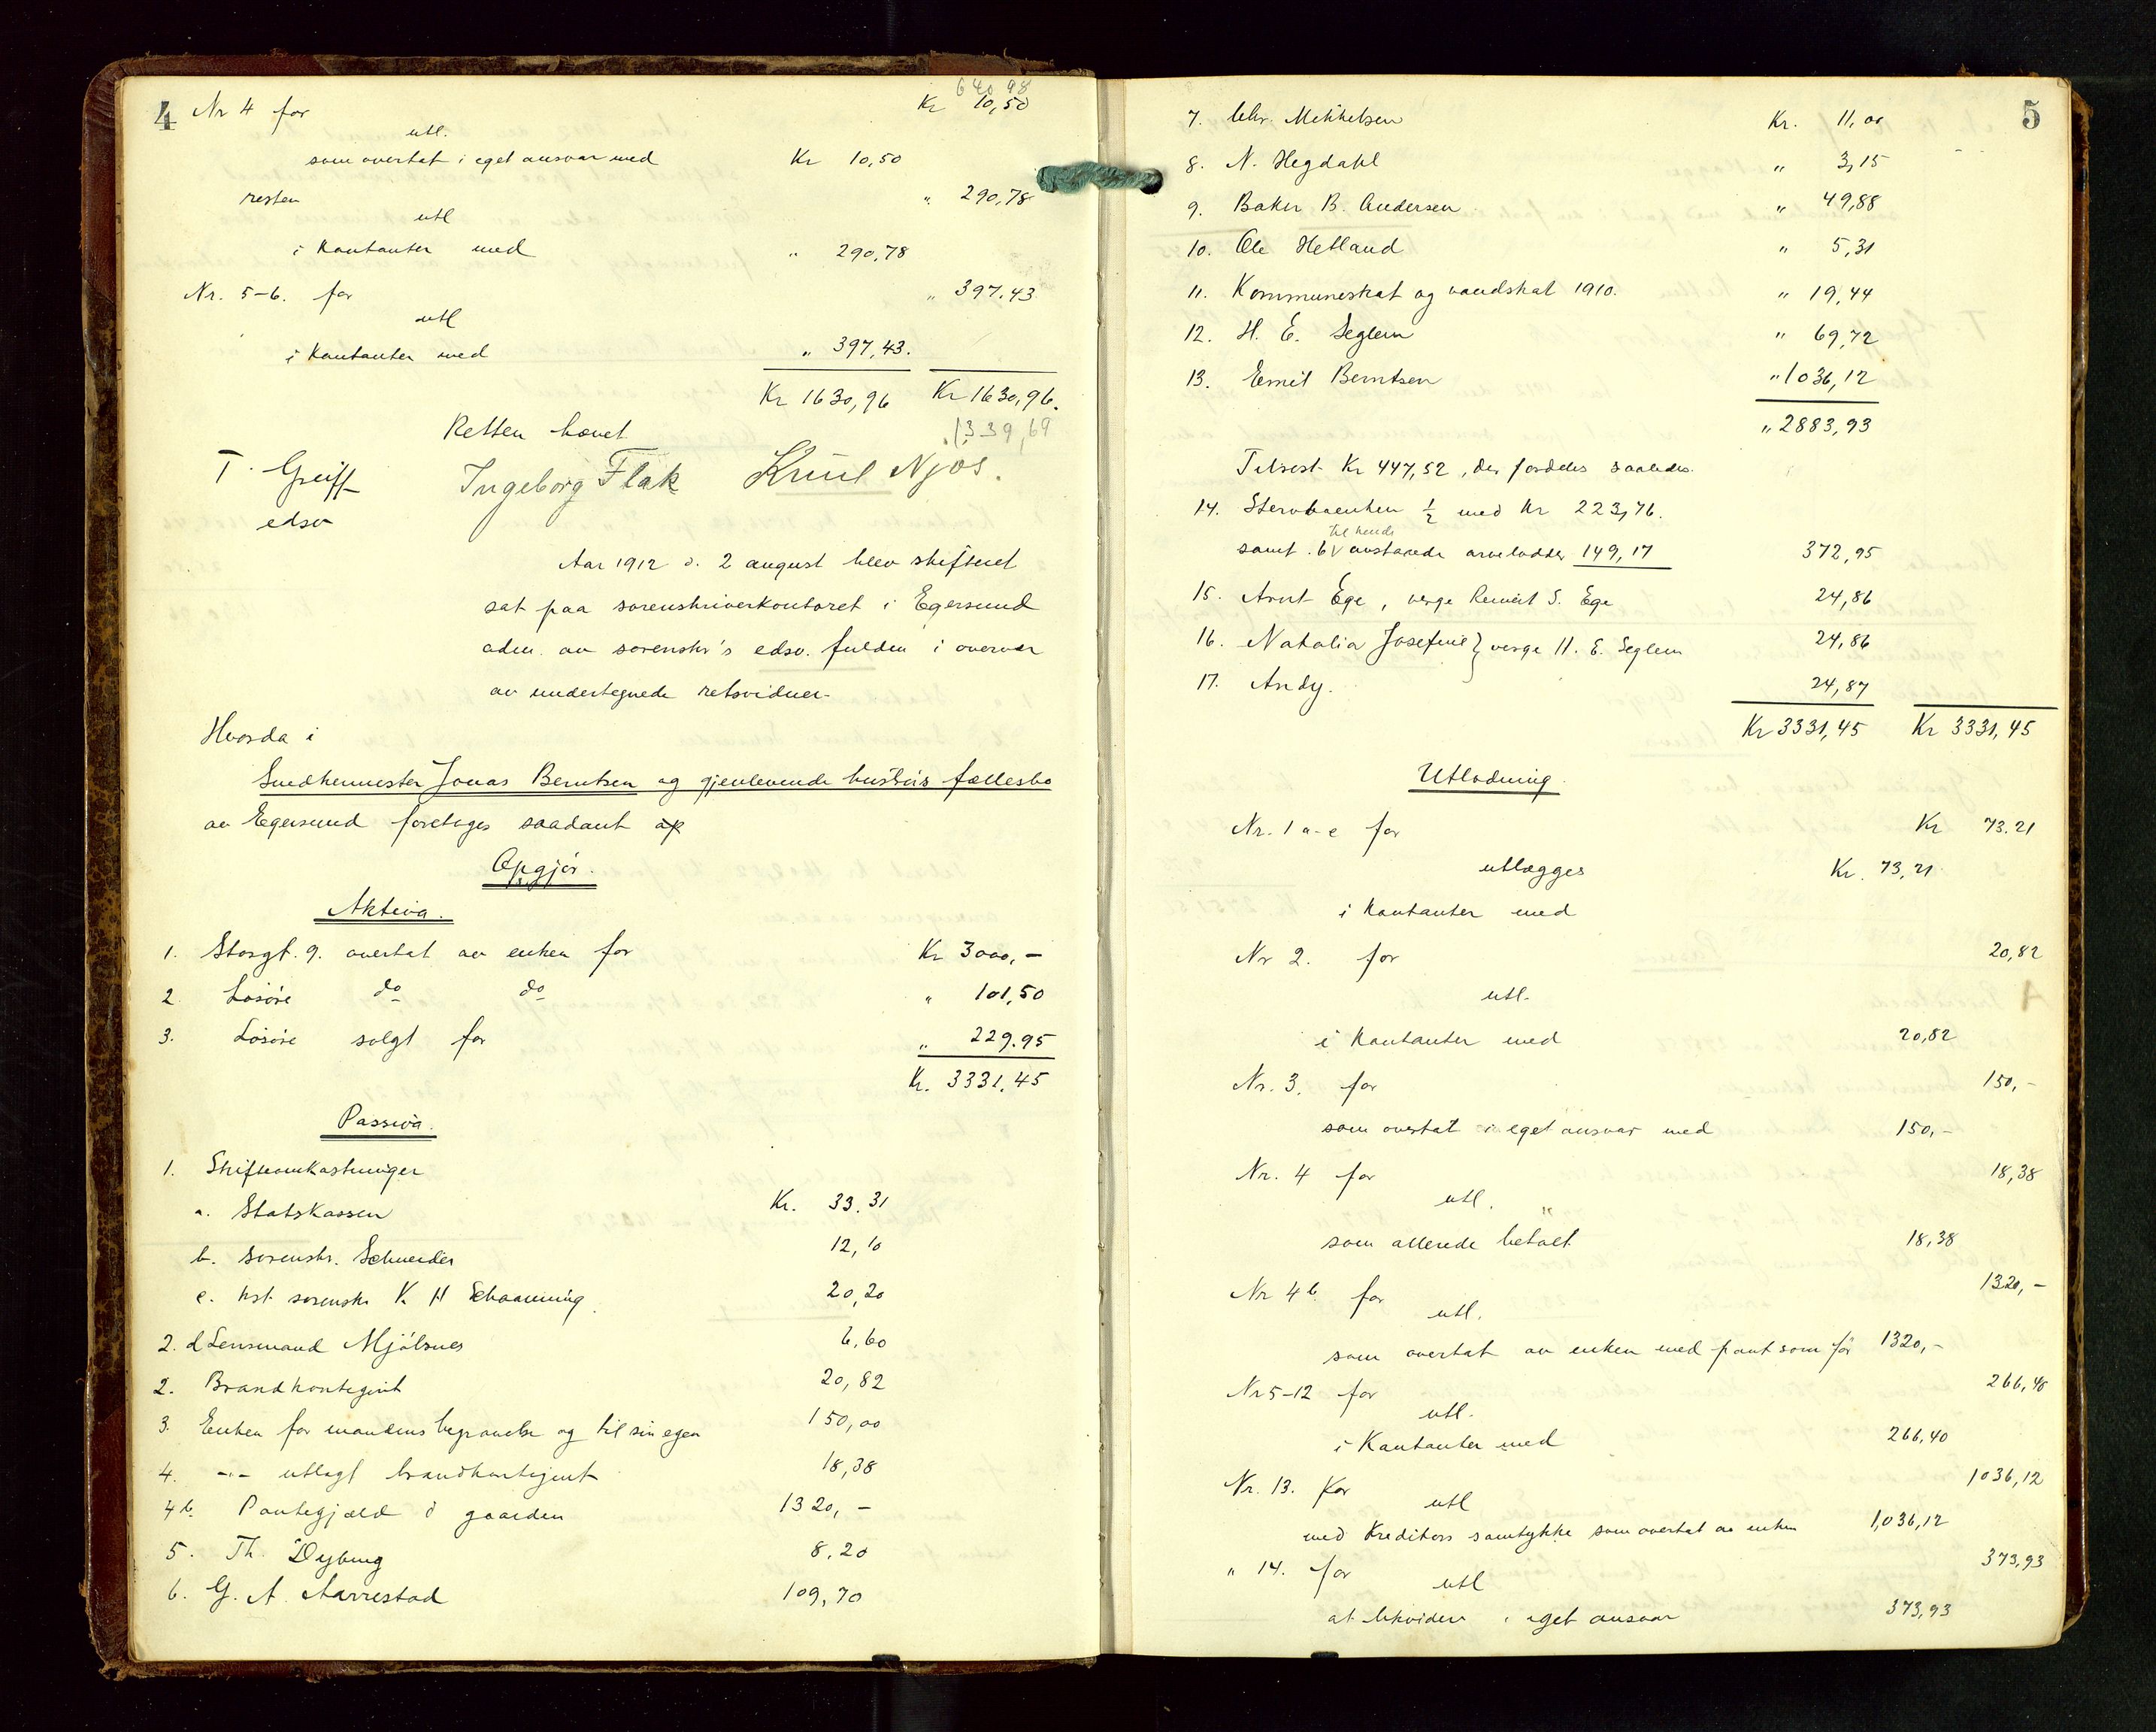 4
640 98
Nr 4 for Kr 10,50
utl.
som overtat i eget ansvar med Kr 10,50
resten " 290,78
utl
i Kontanter med " 290,78
Nr. 5-6. for " 397.43
utl
i Kontanter med " 397,43.
Kr 1630,96 Kr 1630,96.
Retten hævet 1339,69
T. Greiff Ingeborg Flak Knut Njos.
edsv
Aar 1912 d. 2 august blev skifteret
sat paa sorenskriverkontoret i Egersund
adm. av sorenskr's edsv. fuldm i overvær
av undertegnede retsvidner.
Hvorda i
Snedkermester Jonas Berntsen og gjenlevende hustrus fællesbo
av Egersund foretages saadant op
Opgjør.
Aktiva.
1. Storgt. 9. overtat av enken for Kr 3000,-
2 Løsøre do do " 101,50
3. Løsøre solgt for " 229.95
Kr. 3331.45
Passiva.
1. Skifteomkostninger
a. Statskassen Kr. 33.31
b. sorenskr. Schneider 12,10
c. kst. sorenskr K H Schaanning 20,20
2. d Lensmand Mjølsnes 6,60
2. Brandkontigent 20,82
3. Enken for mandens begravelse og til sin egen 150,00
4. -"- utlagt brandkontigent 18,38
4b. Pantegjæld i gaarden 1320,-
5. Th. Dybing 8,20
6. G. A. Aarrestad 109,70
5
7. Chr. Mikkelsen Kr. 11,00
8. N. Hegdahl " 3,15
9. Baker B. Andersen " 49,88
10. Ole Hetland " 5,31
11. Kommuneskat og vandskat 1910. " 19,44
12. H. E. Seglem " 69,72
13. Emil Berntsen " 1036,12
" 2883,93
Tilrest Kr 447,52, der fordeles saaledes.
14. Stervboenken 1/2 med Kr 223,76.
til hende
samt 6 avstaaede arvelodder 149,17 372,95
15. Arnt Ege, verge Reinert S. Ege 24,86
16. Natalia Josefine } verge H. E. Seglem 24,86
17. Andy. 24,87
Kr 3331,45 Kr 3331,45
Utlodning.
Nr. 1 a-e for Kr 73.21
utlægges Kr. 73,21
i Kontanter med
Nr 2. for 20,82
utl.
i Kontanter med 20,82
Nr. 3. for 150,-
som overtat i eget ansvar med 150,-
Nr. 4 for 18,38
utl.
som allerede betalt 18,38
Nr 4b for 1320,-
utl.
som overtat av enken med pant som før 1320,-
Nr 5-12 for 266,40
utl.
i Kontanter med 266,40
Nr. 13. For 1036,12
utl
med Kreditors samtykke som overtat av enken 1,036,12
" 14. for 373,93
utl
at likvidere i eget ansvar 373,93